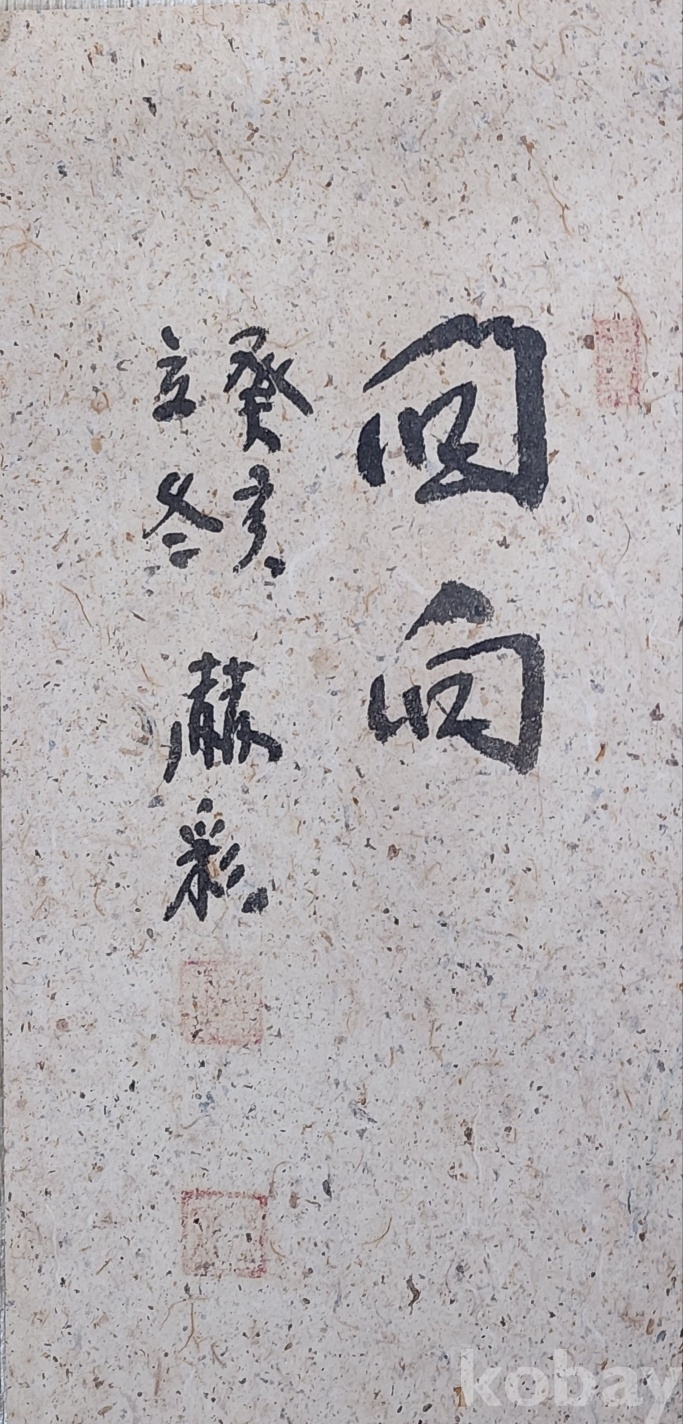 回向
癸亥
立冬
赫彩
kobay